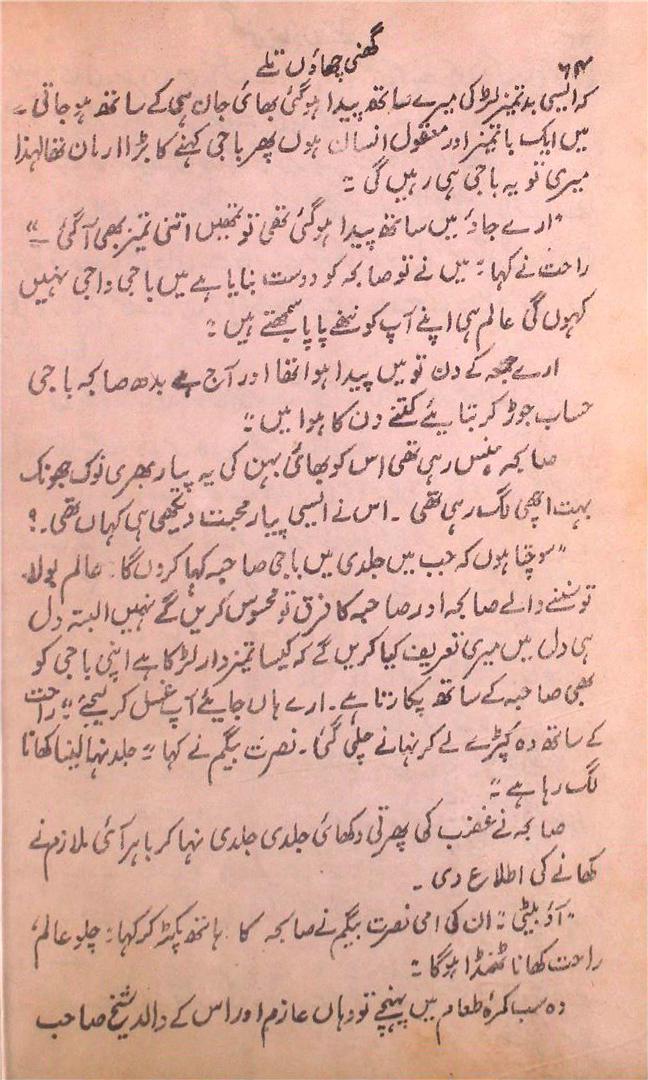 ۶۴
گھنی چھاؤں تلے
کہ ایسی بدتمیز لڑکی میرے ساتھ پیدا ہوگئی بھائی جان ہی کے ساتھ ہو جاتی ۔
میں ایک باتمیز اور معقول انسان ہوں پھر باجی کہنے کا بڑا ارمان تھا لہٰذا
میری تو یہ باجی ہی رہیں گی "
"ارے جاؤ میں ساتھ پیدا ہو گئی تھی تو تمھیں اتنی تمیز بھی آ گئی ۔"
راحت نے کہا " میں نے تو صابحہ کو دوست بنایا ہے میں باجی واجی نہیں
کہوں گی عالم ہی اپنے آپ کو ننھے پاپا سمجھتے ہیں "
ارے جمعہ کے دن تو میں پیدا ہوا تھا اور آج ہے بدھ صابحہ باجی
حساب جوڑ کر بتایئے کتنے دن کا ہوا میں "
صابحہ ہنس رہی تھی اس کو بھائی بہن کی یہ پیار بھری نوک جھونک
بہت اچھی لگ رہی تھی ۔ اس نے ایسی پیار محبت دیکھی ہی کہاں تھی ۔؟
"سوچتا ہوں کہ جب میں جلدی میں باجی صاحبہ کہا کروں گا۔ عالم بولا۔
تو سننے والے صابحہ اور صاحبہ کا فرق تو محسوس کریں گے نہیں البتہ دل
ہی دل میں میری تعریف کیا کریں گے کہ کیسا تمیزدار لڑکا ہے اپنی باجی کو
بھی صاحبہ کے ساتھ پکارتا ہے ۔ ارے ہاں جایئے آپ غسل کر لیجئے " راحت
کے ساتھ وہ کپڑے لے کر نہانے چلی گئی ۔ نصرت بیگم نے کہا " جلد نہا لینا کھانا
لگ رہا ہے "
صابحہ نے غضب کی پھرتی دکھائی جلدی جلدی نہا کر باہر آئی ملازم نے
کھانے کی اطلاع دی ۔
"آؤ بیٹی " ان کی امی نصرت بیگم نے صابحہ کا ہاتھ پکڑ کر کہا " چلو عالم ،
راحت کھانا ٹھنڈا ہوگا "
وہ سب کمرۂ طعام میں پہنچے تو وہاں عازم اور اس کے والد شیخ صاحب